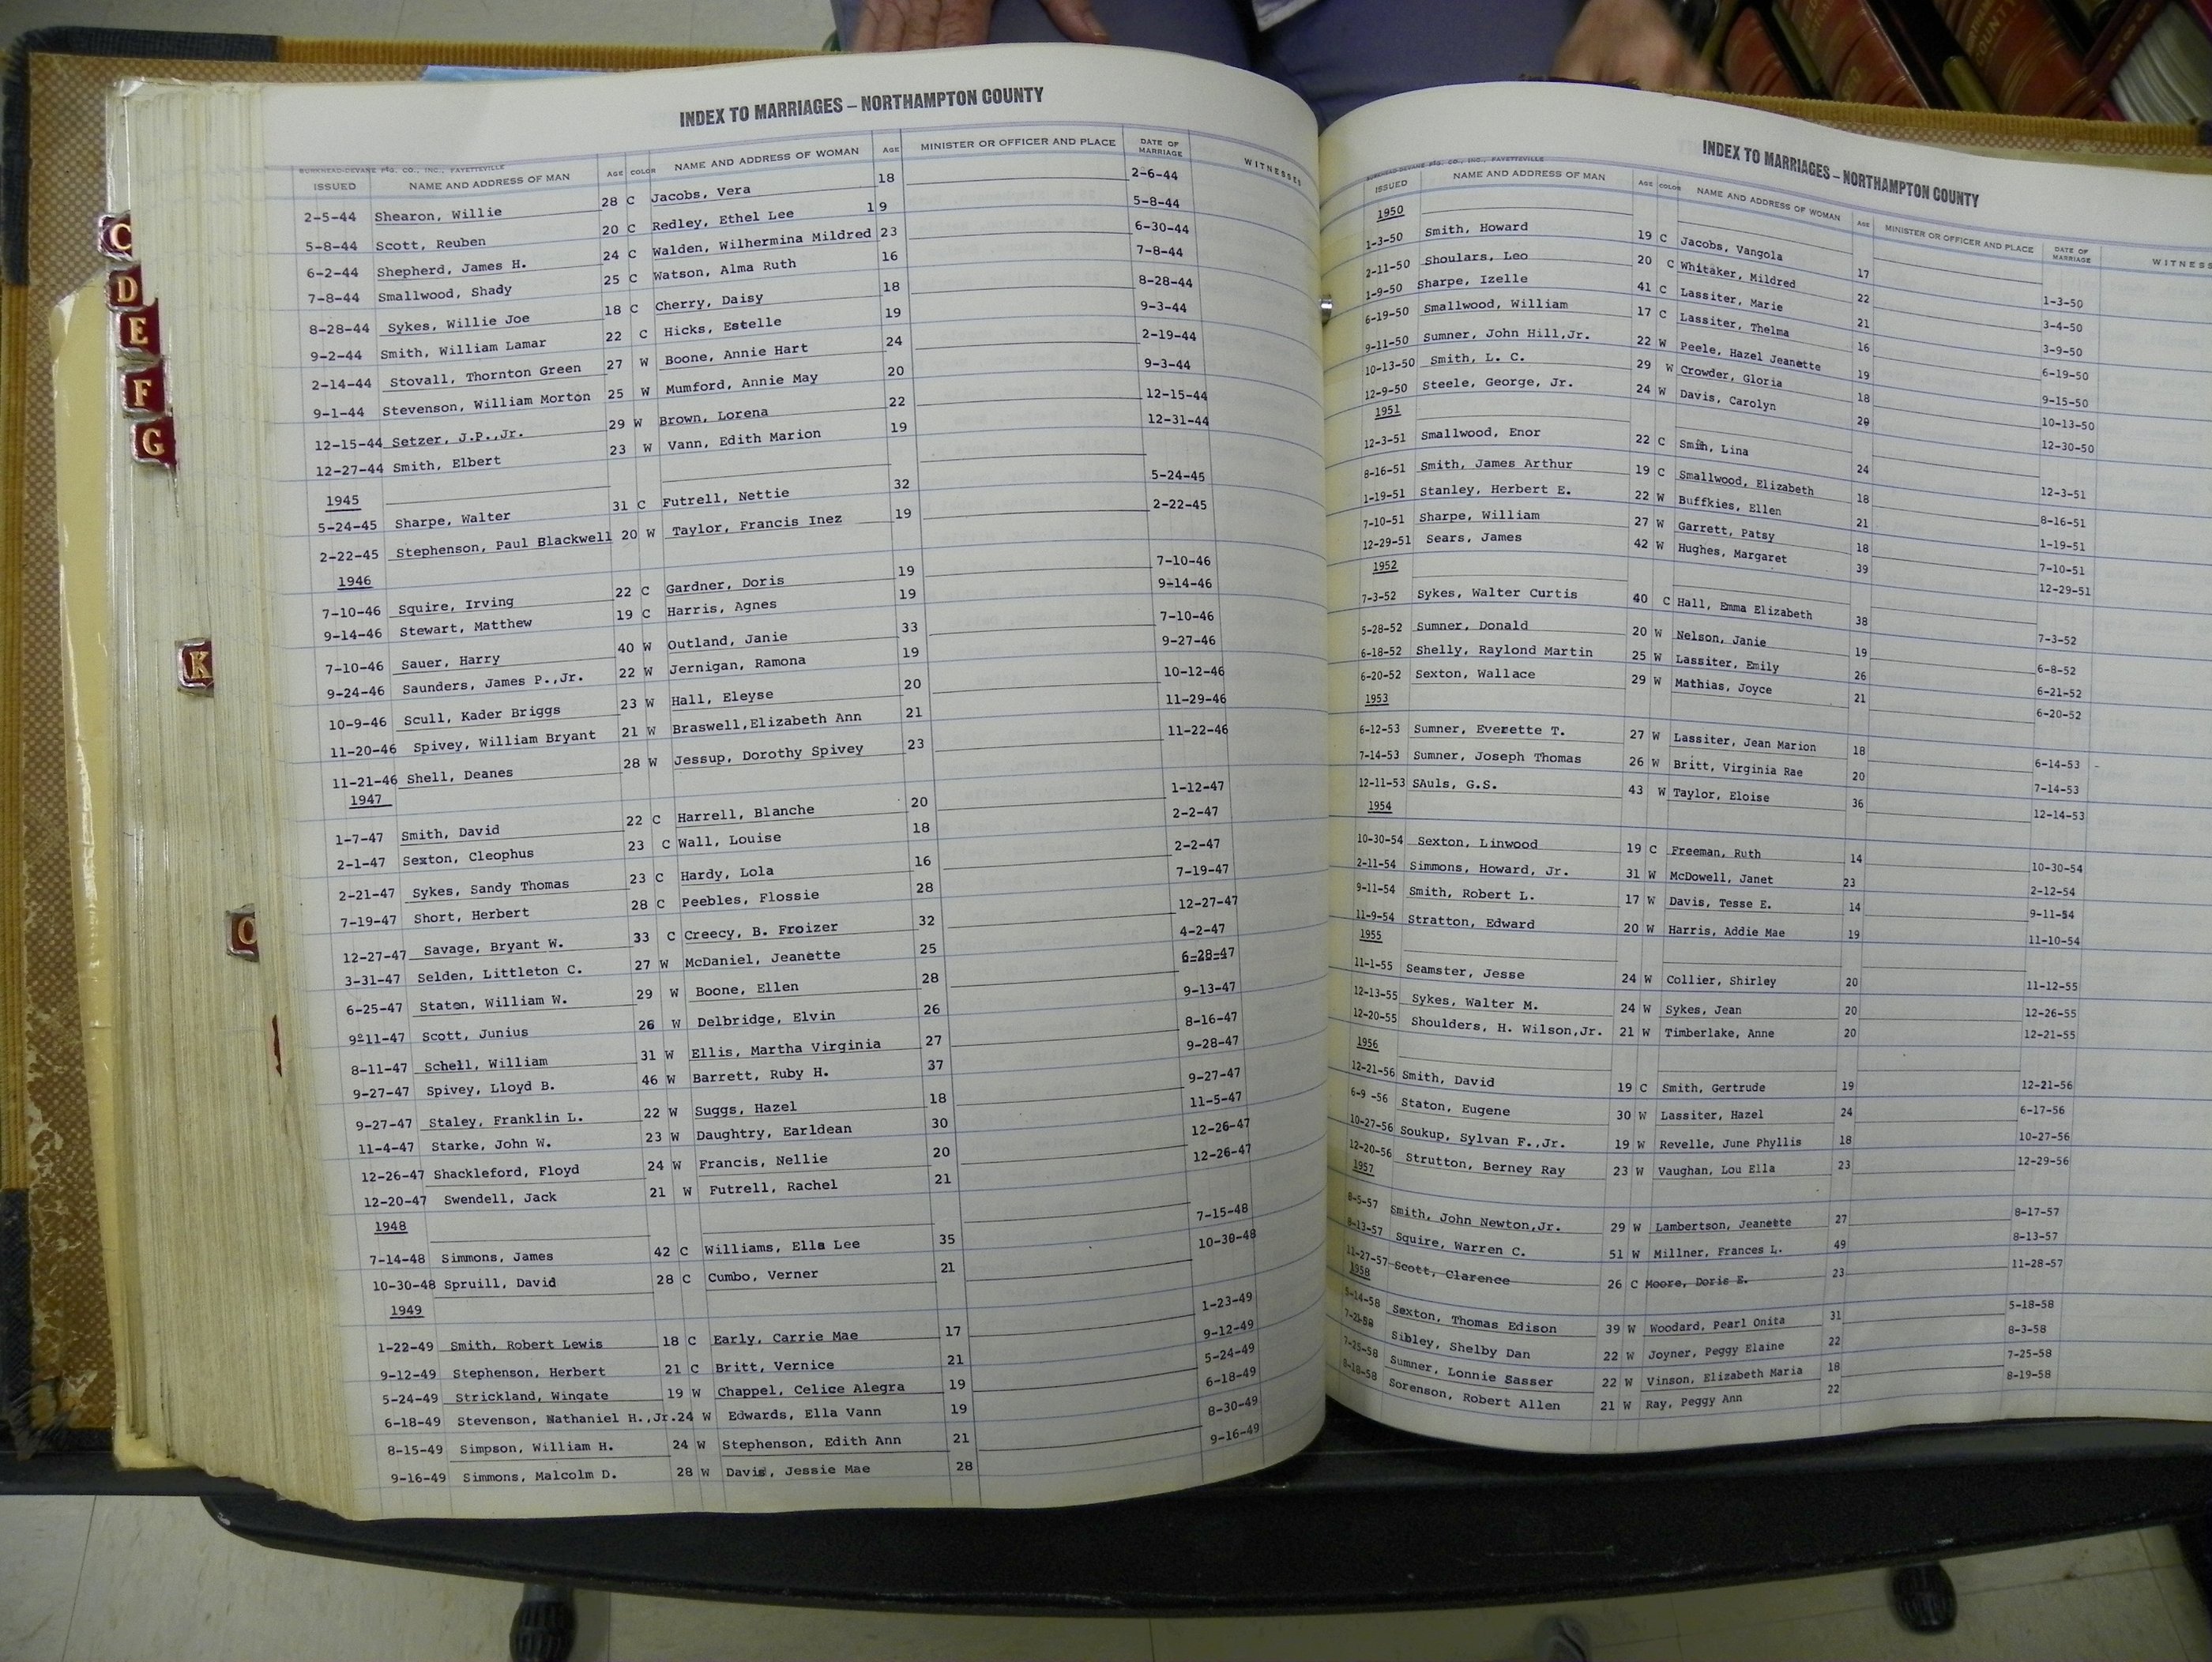 C
D
E
F
G
K
O
INDEX TO MARRIAGES – NORTHAMPTON COUNTY
BURKHEAD-DEVANE P'T'G. CO., INC., FAYETTEVILLE
ISSUED NAME AND ADDRESS OF MAN AGE COLOR NAME AND ADDRESS OF WOMAN AGE MINISTER OR OFFICER AND PLACE DATE OF MARRIAGE WITNESSES
2-5-44 Shearon, Willie 28 C Jacobs, Vera 18 2-6-44
5-8-44 Scott, Reuben 20 C Redley, Ethel Lee 19 5-8-44
6-2-44 Shepherd, James H. 24 C Walden, Wilhermina Mildred 23 6-30-44
7-8-44 Smallwood, Shady 25 C Watson, Alma Ruth 16 7-8-44
8-28-44 Sykes, Willie Joe 18 C Cherry, Daisy 18 8-28-44
9-2-44 Smith, William Lamar 22 C Hicks, Estelle 19 9-3-44
2-14-44 Stovall, Thornton Green 27 W Boone, Annie Hart 24 2-19-44
9-1-44 Stevenson, William Morton 25 W Mumford, Annie May 20 9-3-44
12-15-44 Setzer, J.P.,Jr. 29 W Brown, Lorena 22 12-15-44
12-27-44 Smith, Elbert 23 W Vann, Edith Marion 19 12-31-44
1945
5-24-45 Sharpe, Walter 31 C Futrell, Nettie 32 5-24-45
2-22-45 Stephenson, Paul Blackwell 20 W Taylor, Francis Inez 19 2-22-45
1946
7-10-46 Squire, Irving 22 C Gardner, Doris 19 7-10-46
9-14-46 Stewart, Matthew 19 C Harris, Agnes 19 9-14-46
7-10-46 Sauer, Harry 40 W Outland, Janie 33 7-10-46
9-24-46 Saunders, James P.,Jr. 22 W Jernigan, Ramona 19 9-27-46
10-9-46 Scull, Kader Briggs 23 W Hall, Eleyse 20 10-12-46
11-20-46 Spivey, William Bryant 21 W Braswell,Elizabeth Ann 21 11-29-46
11-21-46 Shell, Deanes 28 W Jessup, Dorothy Spivey 23 11-22-46
1947
1-7-47 Smith, David 22 C Harrell, Blanche 20 1-12-47
2-1-47 Sexton, Cleophus 23 C Wall, Louise 18 2-2-47
2-21-47 Sykes, Sandy Thomas 23 C Hardy, Lola 16 2-2-47
7-19-47 Short, Herbert 28 C Peebles, Flossie 28 7-19-47
12-27-47 Savage, Bryant W. 33 C Creecy, B. Froizer 32 12-27-47
3-31-47 Selden, Littleton C. 27 W McDaniel, Jeanette 25 4-2-47
6-25-47 Staton, William W. 29 W Boone, Ellen 28 6-28-47
9-11-47 Scott, Junius 26 W Delbridge, Elvin 26 9-13-47
8-11-47 Schell, William 31 W Ellis, Martha Virginia 27 8-16-47
9-27-47 Spivey, Lloyd B. 46 W Barrett, Ruby H. 37 9-28-47
9-27-47 Staley, Franklin L. 22 W Suggs, Hazel 18 9-27-47
11-4-47 Starke, John W. 23 W Daughtry, Earldean 30 11-5-47
12-26-47 Shackleford, Floyd 24 W Francis, Nellie 20 12-26-47
12-20-47 Swendell, Jack 21 W Futrell, Rachel 21 12-26-47
1948
7-14-48 Simmons, James 42 C Williams, Ella Lee 35 7-15-48
10-30-48 Spruill, David 28 C Cumbo, Verner 21 10-30-48
1949
1-22-49 Smith, Robert Lewis 18 C Early, Carrie Mae 17 1-23-49
9-12-49 Stephenson, Herbert 21 C Britt, Vernice 21 9-12-49
5-24-49 Strickland, Wingate 19 W Chappel, Celice Alegra 19 5-24-49
6-18-49 Stevenson, Nathaniel H.,Jr.24 W Edwards, Ella Vann 19 6-18-49
8-15-49 Simpson, William H. 24 W Stephenson, Edith Ann 21 8-30-49
9-16-49 Simmons, Malcolm D. 28 W Davis, Jessie Mae 28 9-16-49
INDEX TO MARRIAGES – NORTHAMPTON COUNTY
BURKHEAD-DEVANE P'T'G. CO., INC., FAYETTEVILLE
ISSUED NAME AND ADDRESS OF MAN AGE COLOR NAME AND ADDRESS OF WOMAN AGE MINISTER OR OFFICER AND PLACE DATE OF MARRIAGE
1950
1-3-50 Smith, Howard 19 C Jacobs, Vangola 17 1-3-50
2-11-50 Shoulars, Leo 20 C Whitaker, Mildred 22 3-4-50
1-9-50 Sharpe, Izelle 41 C Lassiter, Marie 21 3-9-50
6-19-50 Smallwood, William 17 C Lassiter, Thelma 16 6-19-50
9-11-50 Sumner, John Hill,Jr. 22 W Peele, Hazel Jeanette 19 9-15-50
10-13-50 Smith, L. C. 29 W Crowder, Gloria 18 10-13-50
12-9-50 Steele, George, Jr. 24 W Davis, Carolyn 20 12-30-50
1951
12-3-51 Smallwood, Enor 22 C Smith, Lina 24 12-3-51
8-16-51 Smith, James Arthur 19 C Smallwood, Elizabeth 18 8-16-51
1-19-51 Stanley, Herbert E. 22 W Buffkies, Ellen 21 1-19-51
7-10-51 Sharpe, William 27 W Garrett, Patsy 18 7-10-51
12-29-51 Sears, James 42 W Hughes, Margaret 39 12-29-51
1952
7-3-52 Sykes, Walter Curtis 40 C Hall, Emma Elizabeth 38 7-3-52
5-28-52 Sumner, Donald 20 W Nelson, Janie 19 6-8-52
6-18-52 Shelly, Raylond Martin 25 W Lassiter, Emily 26 6-21-52
6-20-52 Sexton, Wallace 29 W Mathias, Joyce 21 6-20-52
1953
6-12-53 Sumner, Everette T. 27 W Lassiter, Jean Marion 18 6-14-53
7-14-53 Sumner, Joseph Thomas 26 W Britt, Virginia Rae 20 7-14-53
12-11-53 SAuls, G.S. 43 W Taylor, Eloise 36 12-14-53
1954
10-30-54 Sexton, Linwood 19 C Freeman, Ruth 14 10-30-54
2-11-54 Simmons, Howard, Jr. 31 W McDowell, Janet 23 2-12-54
9-11-54 Smith, Robert L. 17 W Davis, Tesse E. 14 9-11-54
11-9-54 Stratton, Edward 20 W Harris, Addie Mae 19 11-10-54
1955
11-1-55 Seamster, Jesse 24 W Collier, Shirley 20 11-12-55
12-13-55 Sykes, Walter M. 24 W Sykes, Jean 20 12-26-55
12-20-55 Shoulders, H. Wilson,Jr. 21 W Timberlake, Anne 20 12-21-55
1956
12-21-56 Smith, David 19 C Smith, Gertrude 19 12-21-56
6-9 -56 Staton, Eugene 30 W Lassiter, Hazel 24 6-17-56
10-27-56 Soukup, Sylvan F.,Jr. 19 W Revelle, June Phyllis 18 10-27-56
12-20-56 Strutton, Berney Ray 23 W Vaughan, Lou Ella 23 12-29-56
1957
8-5-57 Smith, John Newton,Jr. 29 W Lambertson, Jeanette 27 8-17-57
8-13-57 Squire, Warren C. 51 W Millner, Frances L. 49 8-13-57
11-27-57 Scott, Clarence 26 C Moore, Doris E. 23 11-28-57
1958
5-14-58 Sexton, Thomas Edison 39 W Woodard, Pearl Onita 31 5-18-58
7-21-58 Sibley, Shelby Dan 22 W Joyner, Peggy Elaine 22 8-3-58
7-25-58 Sumner, Lonnie Sasser 22 W Vinson, Elizabeth Maria 18 7-25-58
8-18-58 Sorenson, Robert Allen 21 W Ray, Peggy Ann 22 8-19-58
COUNTY